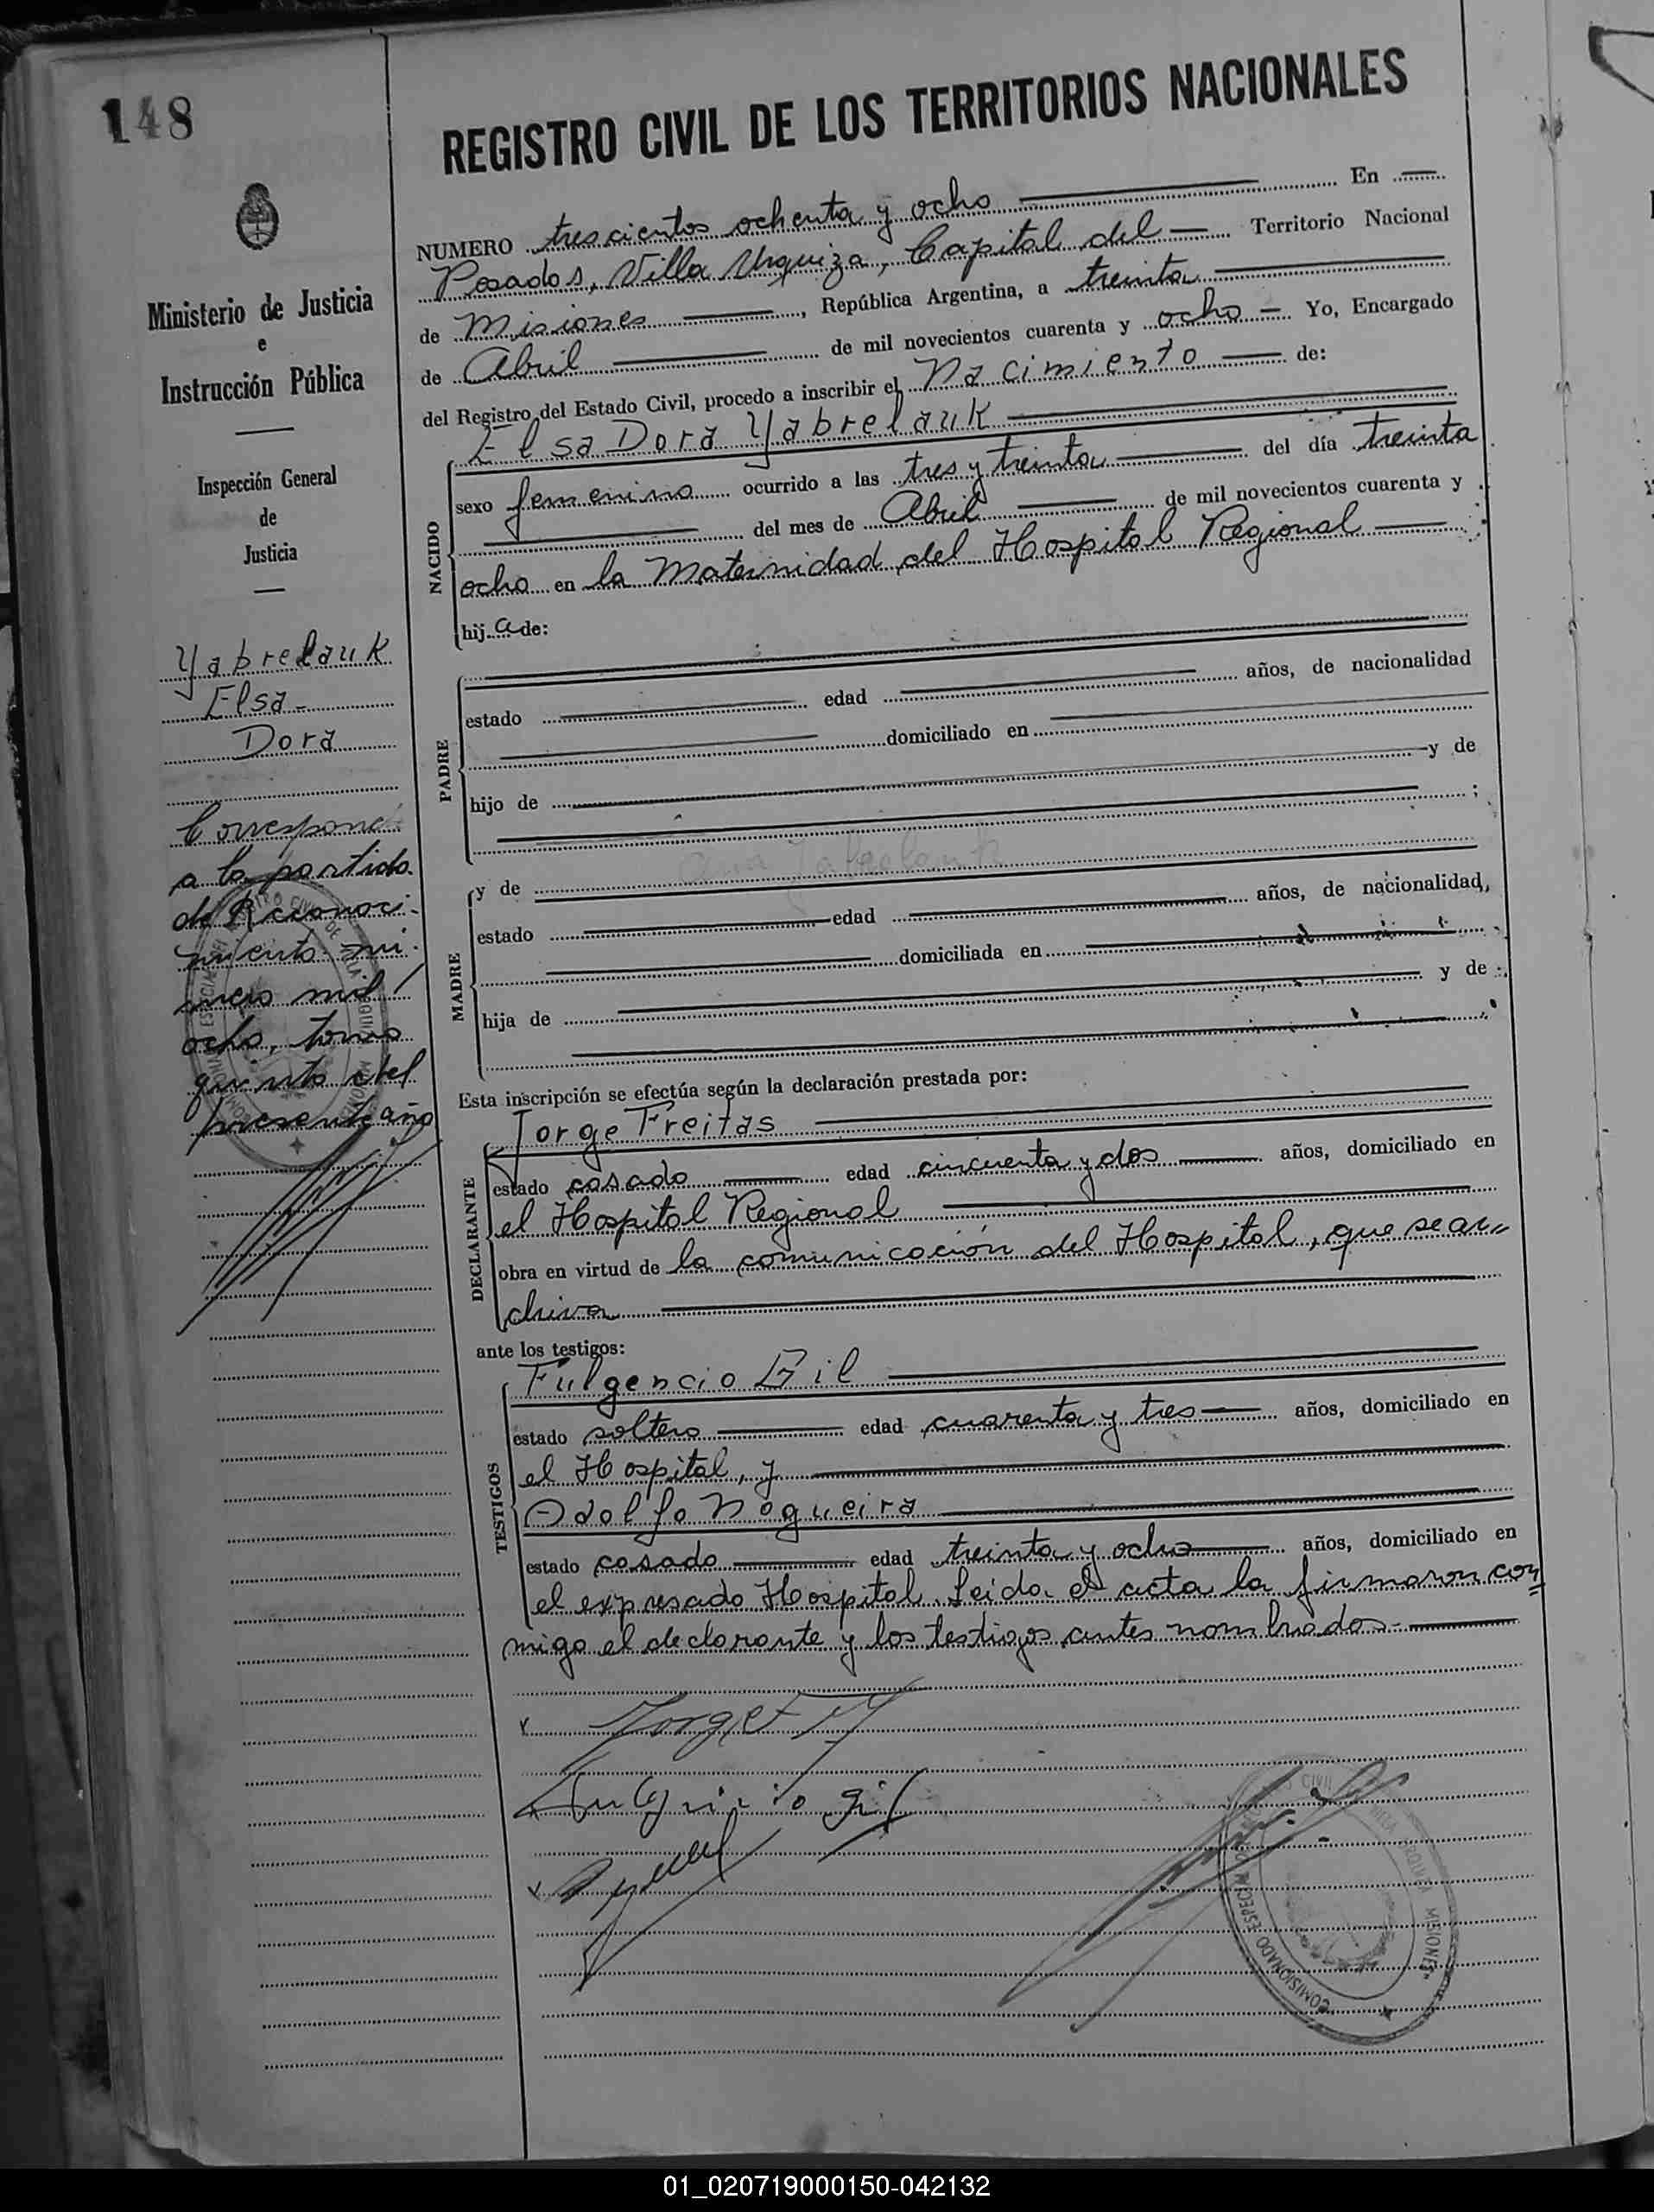 148
REGISTRO CIVIL DE LOS TERRITORIOS NACIONALES
Ministerio de Justicia
e
Instrucción Pública
Inspección General
de
Justicia
Yabrelauk
Elsa
Dora
Corresponde
a la partida
de Reconoci-
miento nú-
mero mil
ocho, tomo
quinto del
presente año
NUMERO trescientos ochenta y ocho En
Posadas, Villa Urquiza, Capital del Territorio Nacional
de Misiones, República Argentina, a treinta
de Abril de mil novecientos cuarenta y ocho Yo, Encargado
del Registro del Estado Civil, procedo a inscribir el Nacimiento de:
Elsa Dora Yabrelauk
NACIDO
sexo femenino ocurrido a las tres y treinta del día treinta
del mes de Abril de mil novecientos cuarenta y
ocho en la Maternidad del Hospital Regional
hija de:
PADRE
estado edad años, de nacionalidad
domiciliado en
hijo de y de
;
MADRE
y de
estado edad años, de nacionalidad,
domiciliada en
hija de y de
Esta inscripción se efectúa según la declaración prestada por:
DECLARANTE
Jorge Freitas
estado casado edad cincuenta y dos años, domiciliado en
el Hospital Regional
obra en virtud de la comunicación del Hospital, que se ar„
chiva
ante los testigos:
TESTIGOS
Fulgencio Gil
estado soltero edad cuarenta y tres años, domiciliado en
el Hospital, y
Adolfo Nogueira
estado casado edad treinta y ocho años, domiciliado en
el expresado Hospital. Leida el acta la firmaron con
migo el declarante y los testigos antes nombrados.
COMISIONADO ESPECIAL MISIONES
01_020719000150-042132